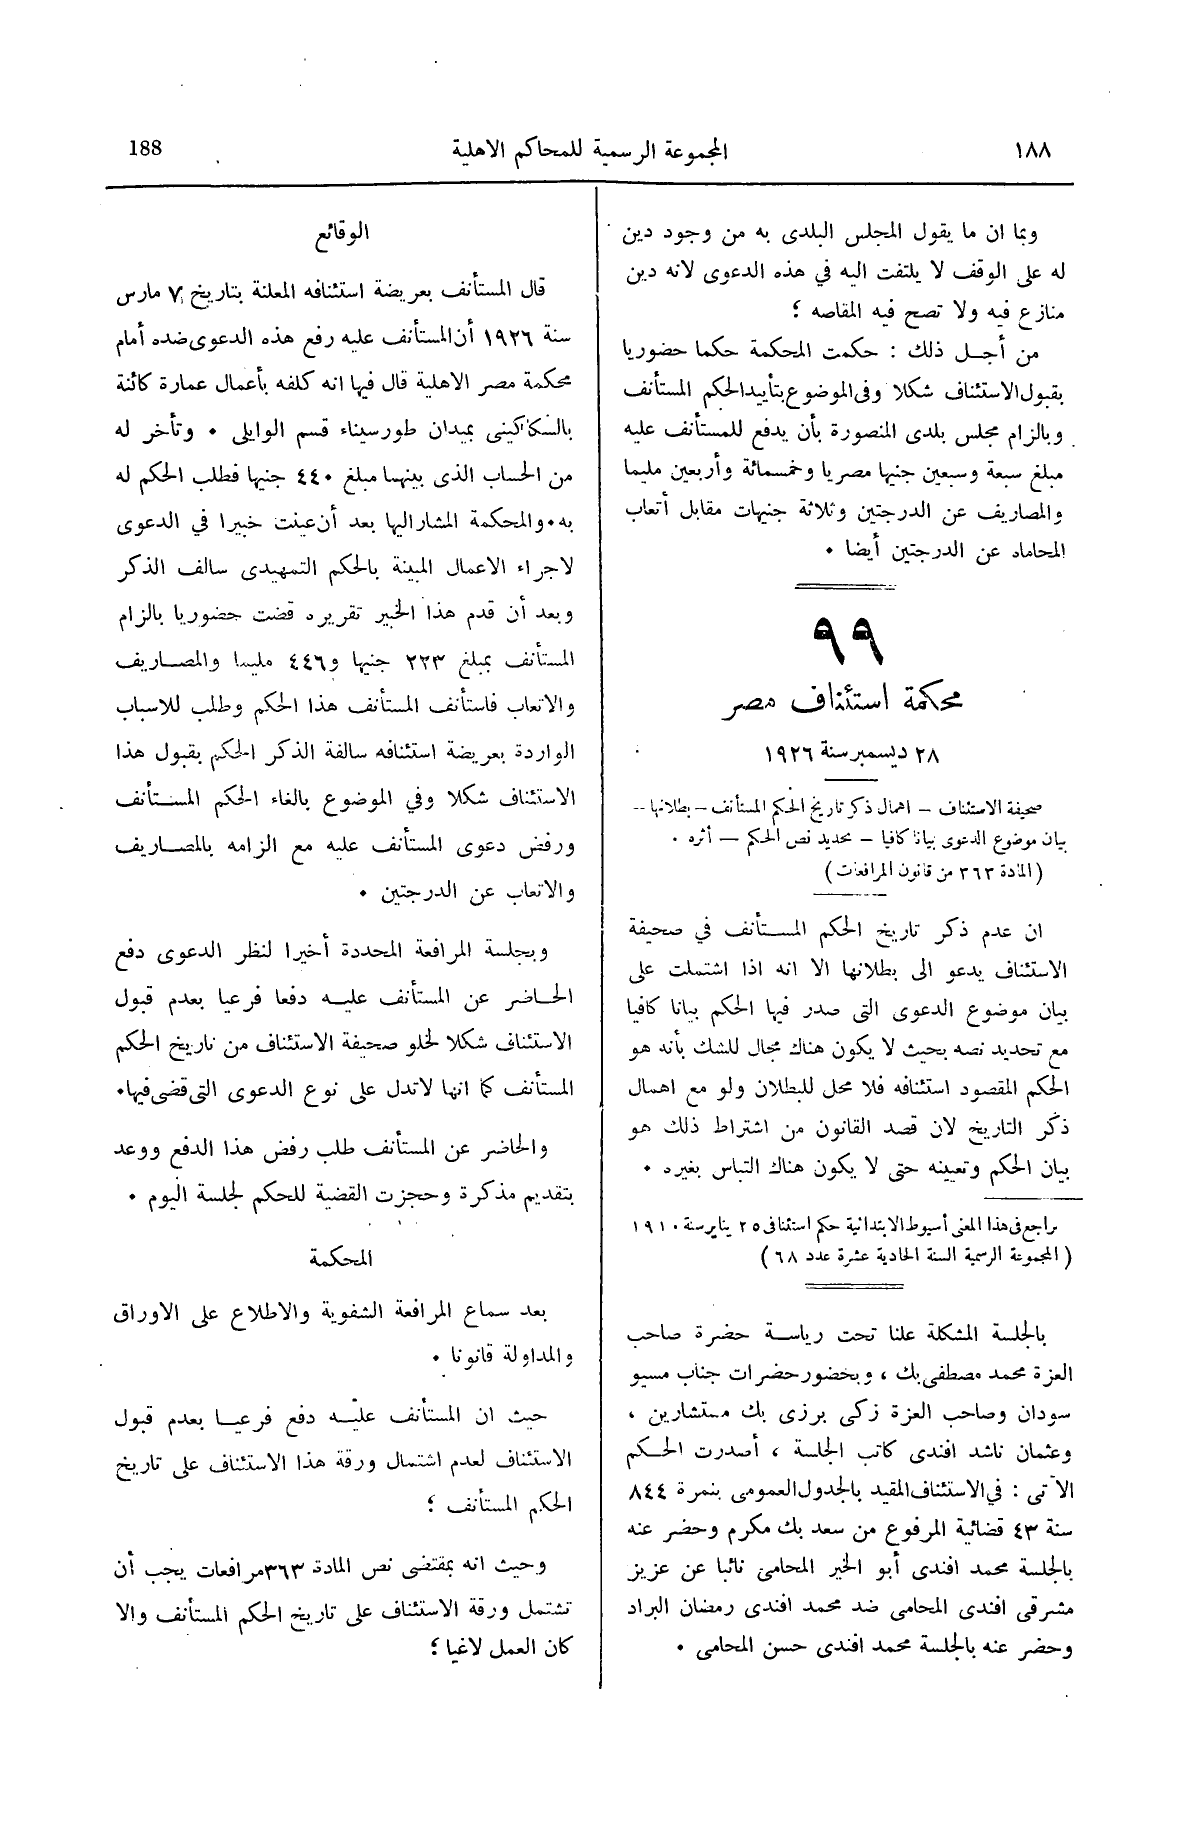 ١٨٨
المجموعة الرسمية للمحاكم الاهلية
188
وبما ان ما يقول المجلس البلدى به من وجود دين
له على الوقف لا يلتفت اليه في هذه الدعوى لانه دين
منازع فيه ولا تصح فيه المقاصه ؛
من أجــل ذلك : حكمت المحكمة حكما حضوريا
بقبول الاستئناف شكلا وفى الموضوع بتأييد الحكم المستأنف
وبالزام مجلس بلدى المنصورة بأن يدفع للمستأنف عليه
مبلغ سبعة وسبعين جنيها مصريا وخمسمائة وأربعين مليما
والمصاريف عن الدرجتين وثلاثة جنيهات مقابل أتعاب
المحاماه عن الدرجتين أيضا ٠
٩٩
محكمة استئناف مصر
٢٨ ديسمبر سنة ١٩٢٦
صحيفة الاستئناف – اهمال ذكر تاريخ الحكم المستأنف – بطلانها –
بيان موضوع الدعوى بيانا كافيا – تحديد نص الحكم – أثره ٠
( المادة ٣٦٣ من قانون المرافعات )
ان عدم ذكر تاريخ الحكم المستأنف في صحيفة
الاستئناف يدعو الى بطلانها الا انه اذا اشتملت على
بيان موضوع الدعوى التى صدر فيها الحكم بيانا كافيا
مع تحديد نصه بحيث لا يكون هناك مجال للشك بأنه هو
الحكم المقصود استئنافه فلا محل للبطلان ولو مع اهمال
ذكر التاريخ لان قصد القانون من اشتراط ذلك هو
بيان الحكم وتعيينه حتى لا يكون هناك التباس بغيره ٠
يراجع فى هذا المعنى أسيوط الابتدائية حكم استئنافى ٢٥ يناير سنة ١٩١٠
( المجموعة الرسمية السنة الحادية عشرة عدد ٦٨ )
بالجلسة المشكلة علنا تحت رياسة حضرة صاحب
العزة محمد مصطفى بك ، وبحضور حضرات جناب مسيو
سودان وصاحب العزة زكى برزى بك مستشارين ،
وعثمان ناشد افندى كاتب الجلسة ، أصدرت الحكم
الآتى : في الاستئناف المقيد بالجدول العمومى بنمرة ٨٤٤
سنة ٤٣ قضائية المرفوع من سعد بك مكرم وحضر عنه
بالجلسة محمد افندى أبو الخير المحامى نائبا عن عزيز
مشرقى افندى المحامى ضد محمد افندى رمضان البراد
وحضر عنه بالجلسة محمد افندى حسن المحامى ٠
الوقائع
قال المستأنف بعريضة استئنافه المعلنة بتاريخ ٧ مارس
سنة ١٩٢٦ أن المستأنف عليه رفع هذه الدعوى ضده أمام
محكمة مصر الاهلية قال فيها انه كلفه بأعمال عمارة كائنة
بالسكاكينى بميدان طورسيناء قسم الوايلى ٠ وتأخر له
من الحساب الذى بينهما مبلغ ٤٤٠ جنيها فطلب الحكم له
به ٠ والمحكمة المشار اليها بعد أن عينت خبيرا في الدعوى
لاجراء الاعمال المبينة بالحكم التمهيدى سالف الذكر
وبعد أن قدم هذا الخبير تقريره قضت حضوريا بالزام
المستأنف بمبلغ ٢٢٣ جنيها و٤٤٦ مليما والمصاريف
والاتعاب فاستأنف المستأنف هذا الحكم وطلب للاسباب
الواردة بعريضة استئنافه سالفة الذكر الحكم بقبول هذا
الاستئناف شكلا وفي الموضوع بالغاء الحكم المستأنف
ورفض دعوى المستأنف عليه مع الزامه بالمصاريف
والاتعاب عن الدرجتين ٠
وبجلسة المرافعة المحددة أخيرا لنظر الدعوى دفع
الحاضر عن المستأنف عليه دفعا فرعيا بعدم قبول
الاستئناف شكلا لخلو صحيفة الاستئناف من تاريخ الحكم
المستأنف كما انها لاتدل على نوع الدعوى التى قضى فيها ٠
والحاضر عن المستأنف طلب رفض هذا الدفع ووعد
بتقديم مذكرة وحجزت القضية للحكم لجلسة اليوم ٠
المحكمة
بعد سماع المرافعة الشفوية والاطلاع على الاوراق
والمداولة قانونا ٠
حيث ان المستأنف عليه دفع فرعيا بعدم قبول
الاستئناف لعدم اشتمال ورقة هذا الاستئناف على تاريخ
الحكم المستأنف ؛
وحيث انه بمقتضى نص المادة ٣٦٣ مرافعات يجب أن
تشتمل ورقة الاستئناف على تاريخ الحكم المستأنف والا
كان العمل لاغيا ؛